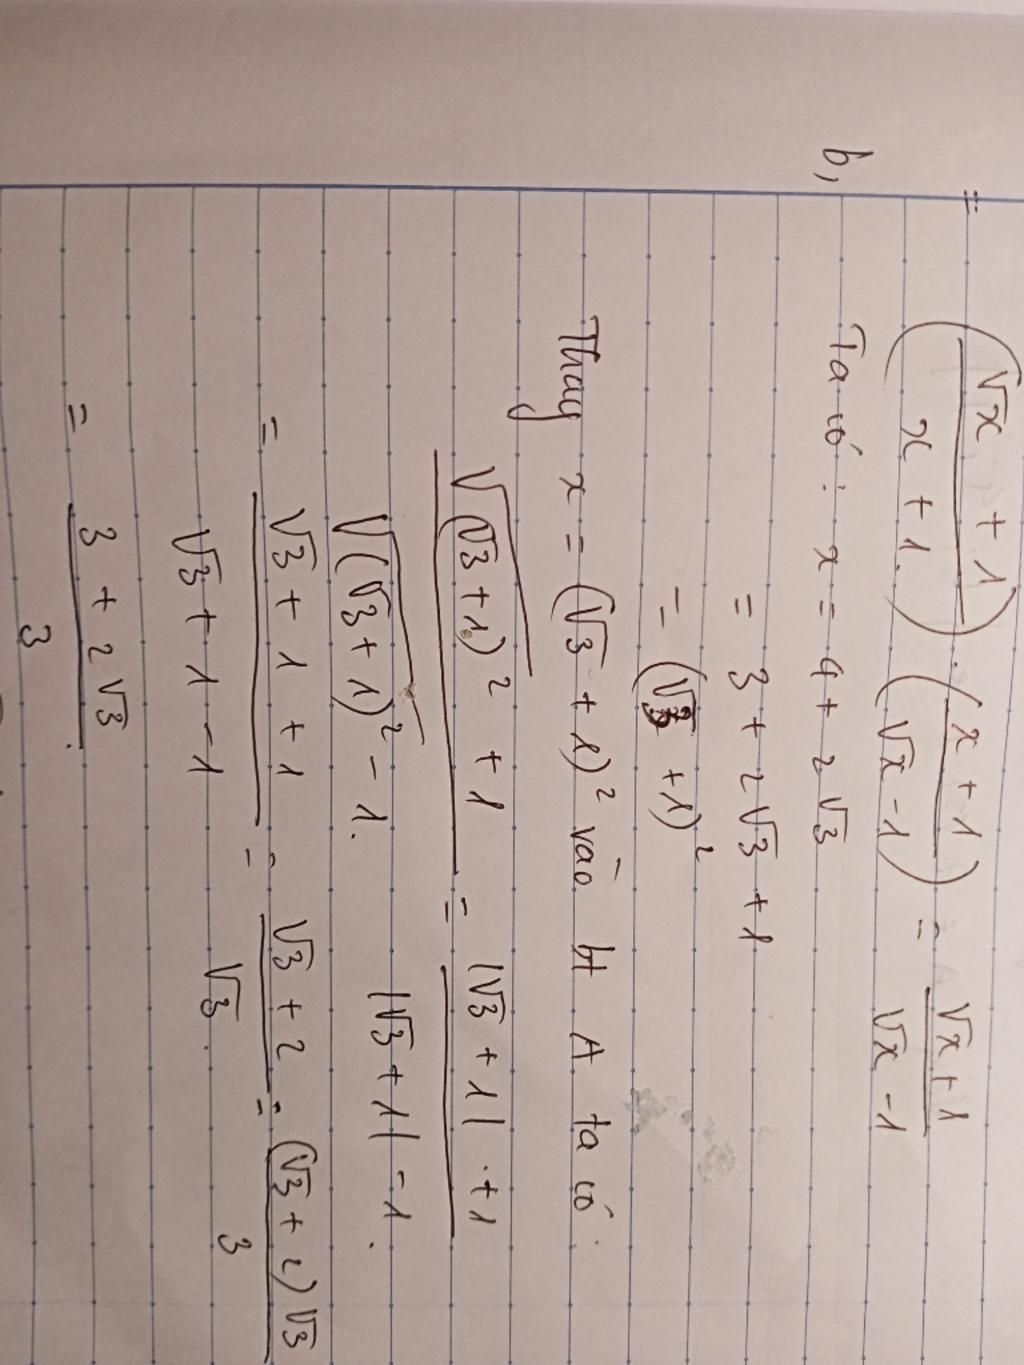 = (√x + 1 / x + 1) . (x + 1 / √x - 1) = √x + 1 / √x - 1
b, Ta có : x = 4 + 2√3
= 3 + 2√3 + 1
= (√3 + 1)²
Thay x = (√3 + 1)² vào bt A ta có :
√(√3 + 1)² + 1 / √(√3 + 1)² - 1 . = |√3 + 1| + 1 / |√3 + 1| - 1 .
= √3 + 1 + 1 / √3 + 1 - 1 = √3 + 2 / √3 . = (√3 + 2)√3 / 3
= 3 + 2√3 / 3 .